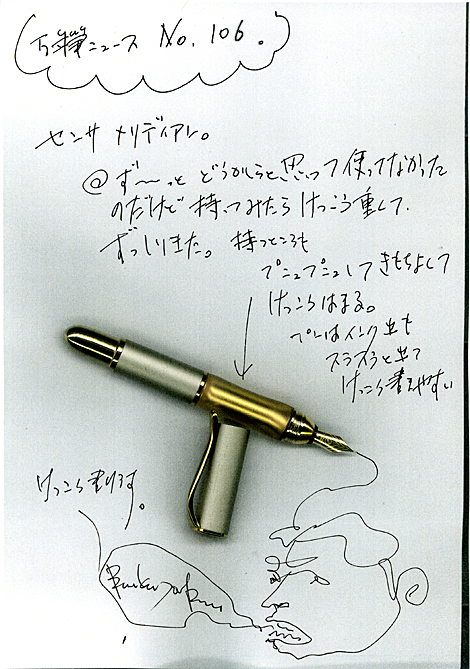 万年筆ニュース No. 106.
センサ メリディアン。
@ず〜っと どうかしらと思って使ってなかった
のだけど 持ってみたら けっこう重くて、
ずっしりきた。持つところも
プニュプニュしてきもちよくて
けっこうはまる。
ペンはインク出も
スラスラと出て
けっこう書きやすい